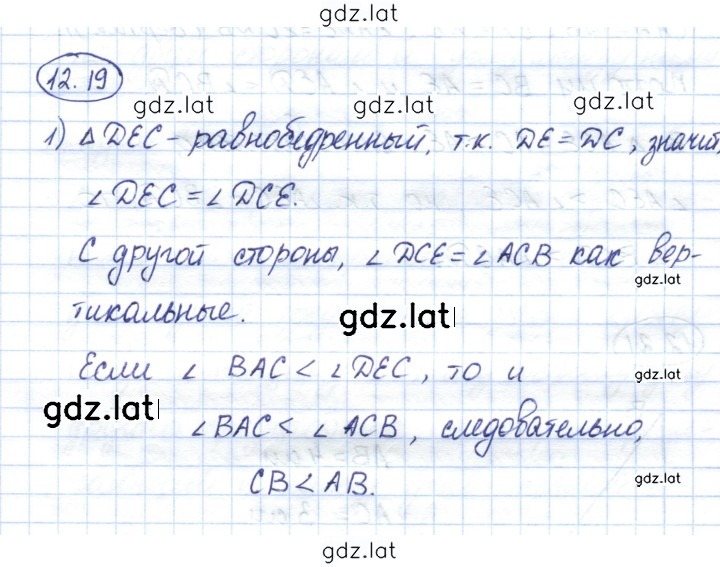 gdz.lat
12.19
gdz.lat gdz.lat gdz.lat
1) △DEC - равнобедренный, т.к. DE = DC, значит,
∠DEC = ∠DCE.
С другой стороны, ∠DCE = ∠ACB как вер-
gdz.lat
тикальные.
gdz.lat
Если ∠ BAC < ∠DEC, то и
gdz.lat
gdz.lat
∠BAC < ∠ ACB, следовательно,
CB < AB.
gdz.lat
gdz.lat